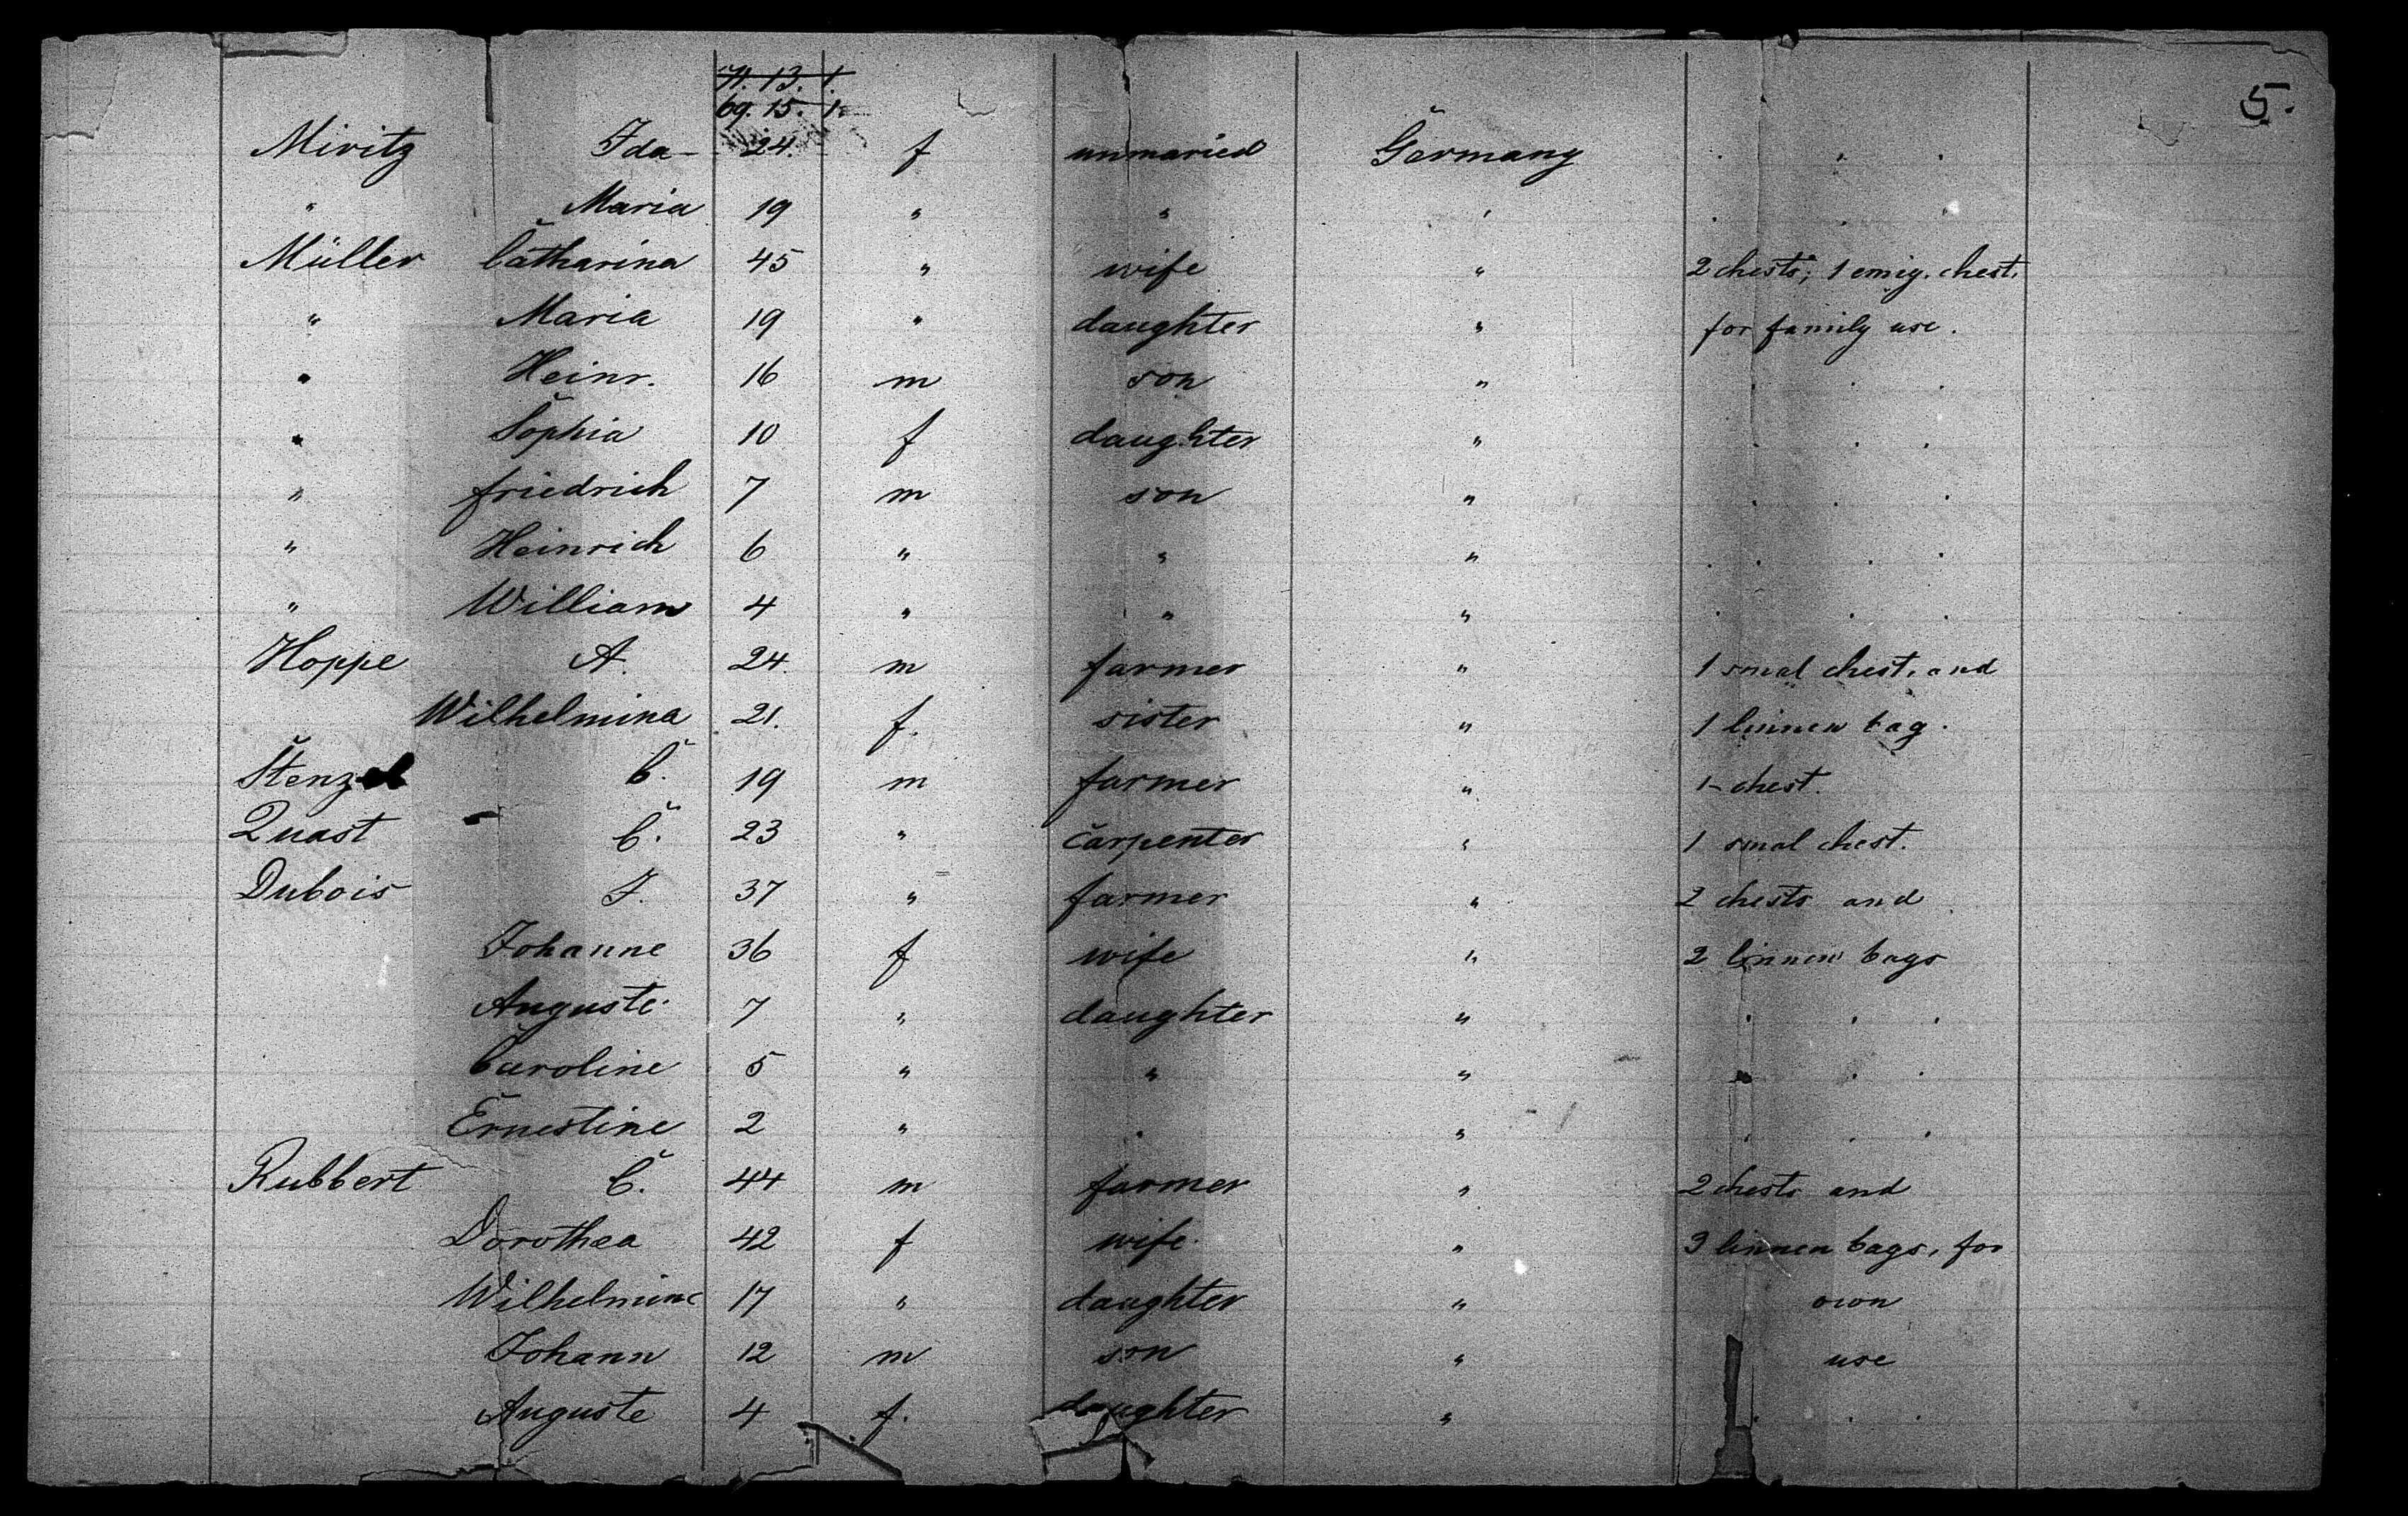 71. 13. 1.
69. 15. 1.
5.
Miritz Ida 24. f unmaried Germany . . .
" Maria 19 " " " . . .
Müller Catharina 45 " wife " 2 chests; 1 emig. chest.
" Maria 19 " daughter " for family use.
" Heinr. 16 m son " . . .
" Sophia 10 f daughter " . . .
" friedrich 7 m son " . . .
" Heinrich 6 " " " . . .
" William 4 " " " . . .
Hoppe A. 24. m farmer " 1 smal chest. and
Wilhelmina 21. f. sister " 1 linnen bag.
Stenzel C. 19 m farmer " 1 chest.
Quast C. 23 " carpenter " 1 smal chest.
Dubois J. 37 " farmer " 2 chests and
Johanne 36 f wife " 2 linnen bags
Auguste 7 " daughter " . . .
Caroline 5 " " " . . .
Ernestine 2 " " " . . .
Rubbert C. 44 m farmer " 2 chests and
Dorothea 42 f wife. " 3 linnen bags, for
Wilhelmine 17 " daughter " own
Johann 12 m son " use
Auguste 4 f. daughter " . . .